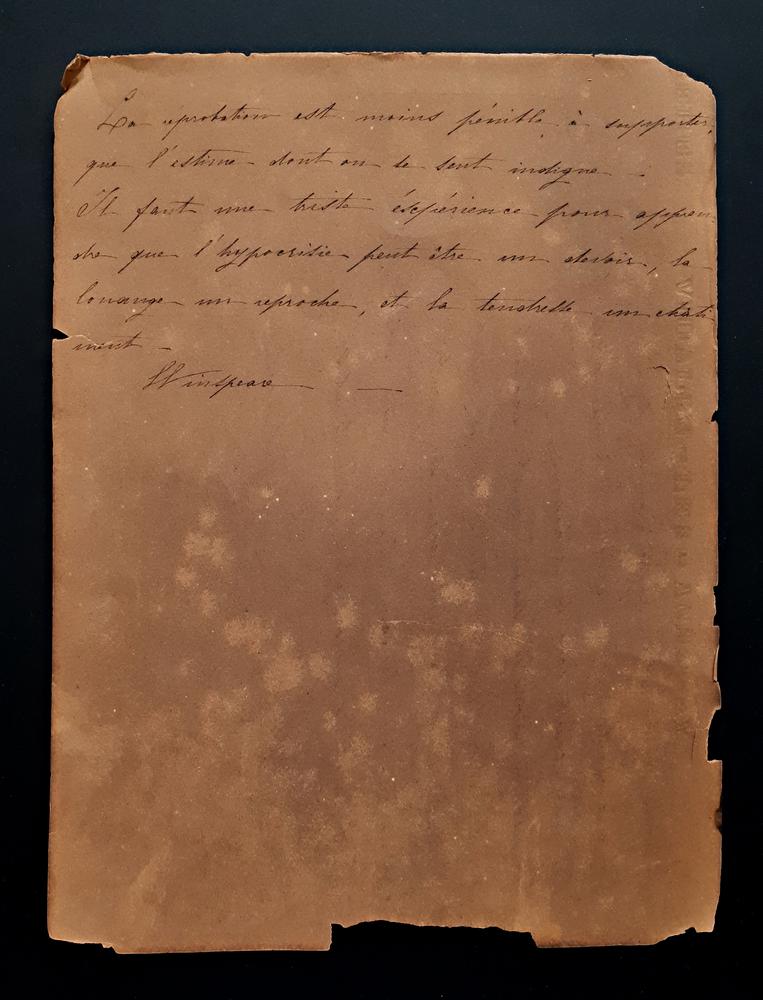 La réprobation est moins pénible à supporter,
que l'estime dont on se sent indigne.
Il faut une triste éxpérience pour appren
dre que l'hypocrisie peut être un devoir, la
louange un reproche, et la tendresse un chati
ment —
Winspeare —